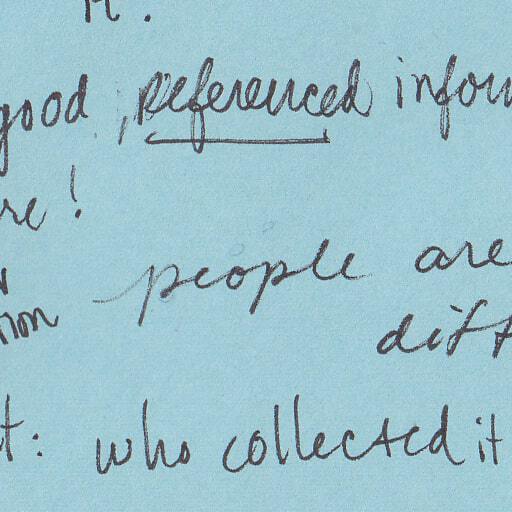 good, referenced infor
re!
people are
tion diff
t: who collected it